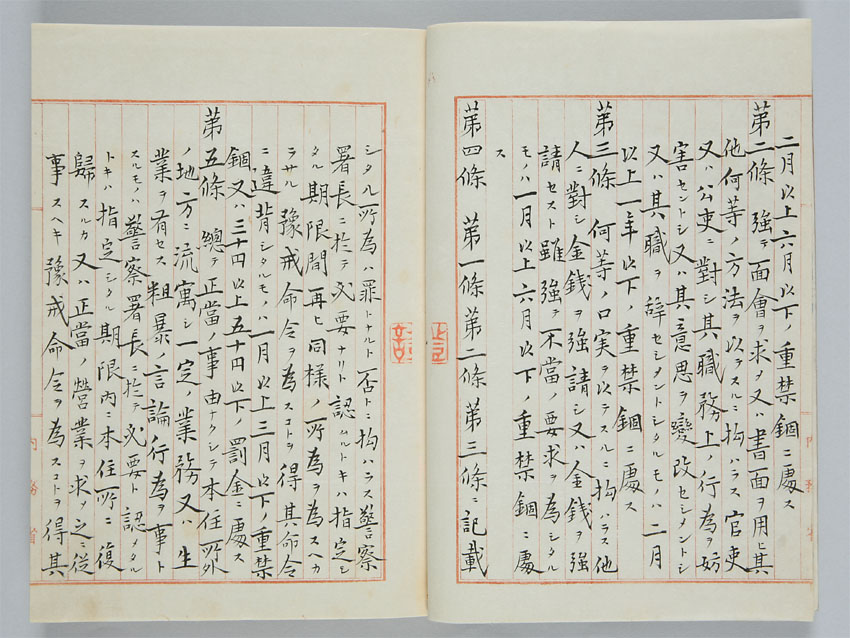 二月以上六月以下ノ重禁錮ニ處ス
第二條 強テ面會ヲ求メ又ハ書面ヲ用ヒ其
他何等ノ方法ヲ以テスルニ拘ハラス官吏
又ハ公吏ニ對シ其職務上ノ行為ヲ妨
害セントシ又ハ其意思ヲ變改セシメントシ
又ハ其職ヲ辞セシメントシタルモノハ二月
以上一年以下ノ重禁錮ニ處ス
第三條 何等ノ口実ヲ以テスルニ拘ハラス他
人ニ對シ金錢ヲ強請シ又ハ金錢ヲ強
請セスト雖強テ不當ノ要求ヲ為シタル
モノハ一月以上六月以下ノ重禁錮ニ處
ス
第四條 第一條第二條第三條ニ記載
シタル所為ハ罪トナルト否トニ拘ハラス警察
署長ニ於テ必要ナリト認ムルトキハ指定シ
タル期限間再ヒ同様ノ所為ヲ為スヘカ
ラサル豫戒命令ヲ為スコトヲ得其命令
ニ違背シタルモノハ一月以上三月以下ノ重禁
錮又ハ三十円以上五十円以下ノ罰金ニ處ス
第五條 總テ正當ノ事由ナクシテ本住所外
ノ地方ニ流寓シ一定ノ業務又ハ生
業ヲ有セス粗暴ノ言論行為ヲ事ト
スルモノハ警察署長ニ於テ必要ト認メタル
トキハ指定シタル期限内ニ本住所ニ復
歸スルカ又ハ正當ノ營業ヲ求メ之ニ従
事スヘキ豫戒命令ヲ為スコトヲ得其